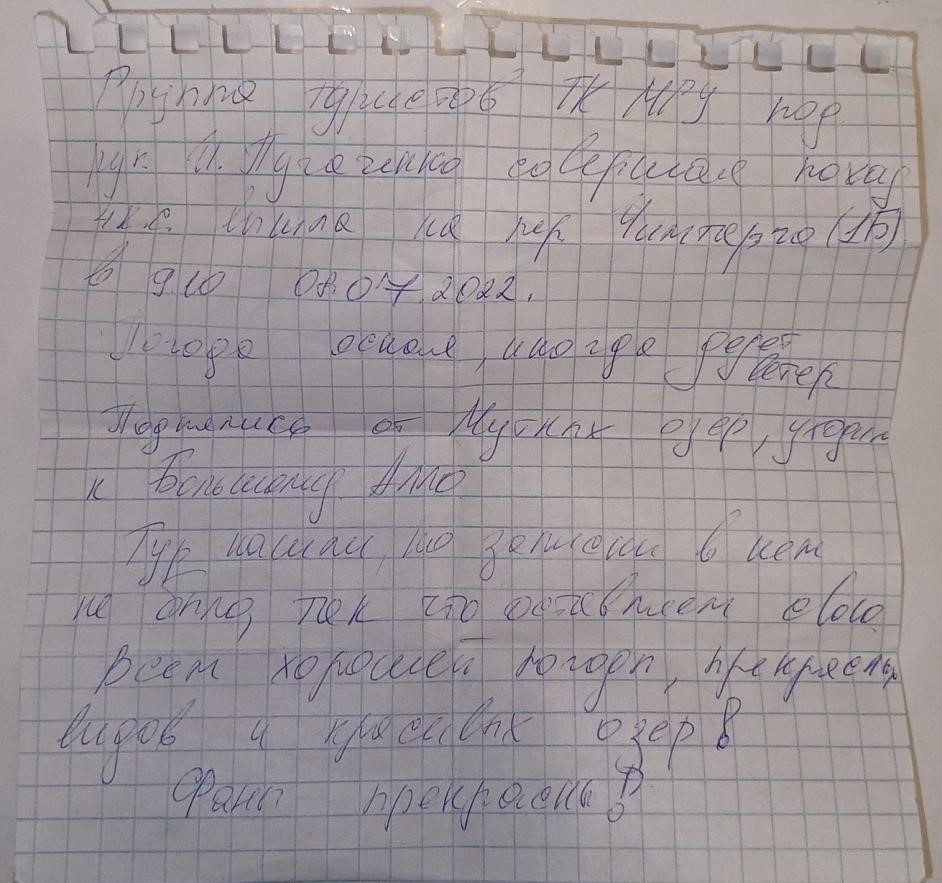 Группа туристов ТК МГУ под
рук. И. Пугаченко совершая поход
4к.с. вышла на пер Чимтарга (1Б)
в 9.10 08.07.2022.
Погода ясная, иногда дерет
ветер
Поднялись от Мутных озер, уходим
к Большому Алло.
Тур нашли, но записки в нем
не было, так что оставляем свою.
Всем хорошей погоды, прекрасных
видов и красивых озер!
Фаны прекрасны!